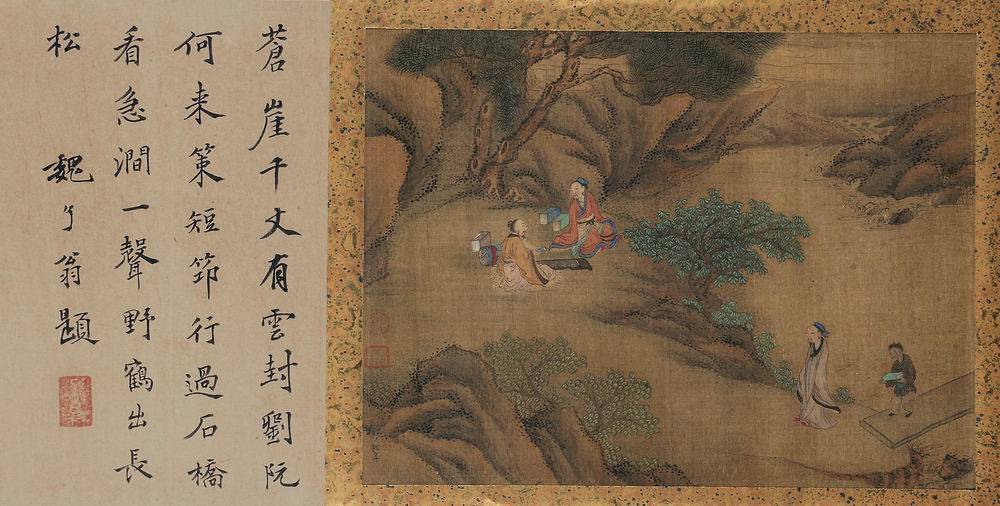 蒼崖千丈有雲封劉阮
何来策短筇行過石橋
看急澗一聲野鶴出長
松　魏了翁題